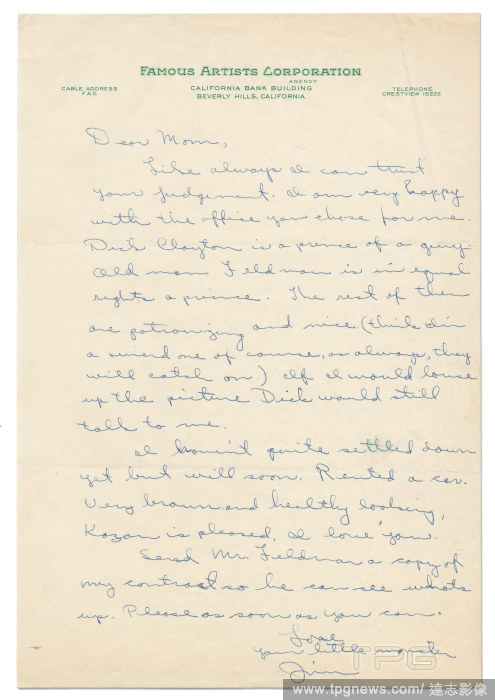 FAMOUS ARTISTS CORPORATION
AGENCY
CABLE ADDRESS
FAC
CALIFORNIA BANK BUILDING
BEVERLY HILLS, CALIFORNIA
TELEPHONE
CRESTVIEW 15222
Dear Mom,
Like always I can trust
your judgement. I am very happy
with the office you chose for me.
Dick Clayton is a prince of a guy.
Old man Feldman is in equal
rights a prince. The rest of them
are patronizing and nice (think I'm
a weird one of course, as always, they
will catch on.) If I would louse
up the picture Dick would still
talk to me.
I haven't quite settled down
yet but will soon. Rented a car.
Very brown and healthy looking,
Kazan is pleased, I love you.
Send Mr. Feldman a copy of
my contract so he can see whats
up. Please as soon as you can.
Love
your little monster
Jim
TPG
www.tpgnews.com / 達志影像